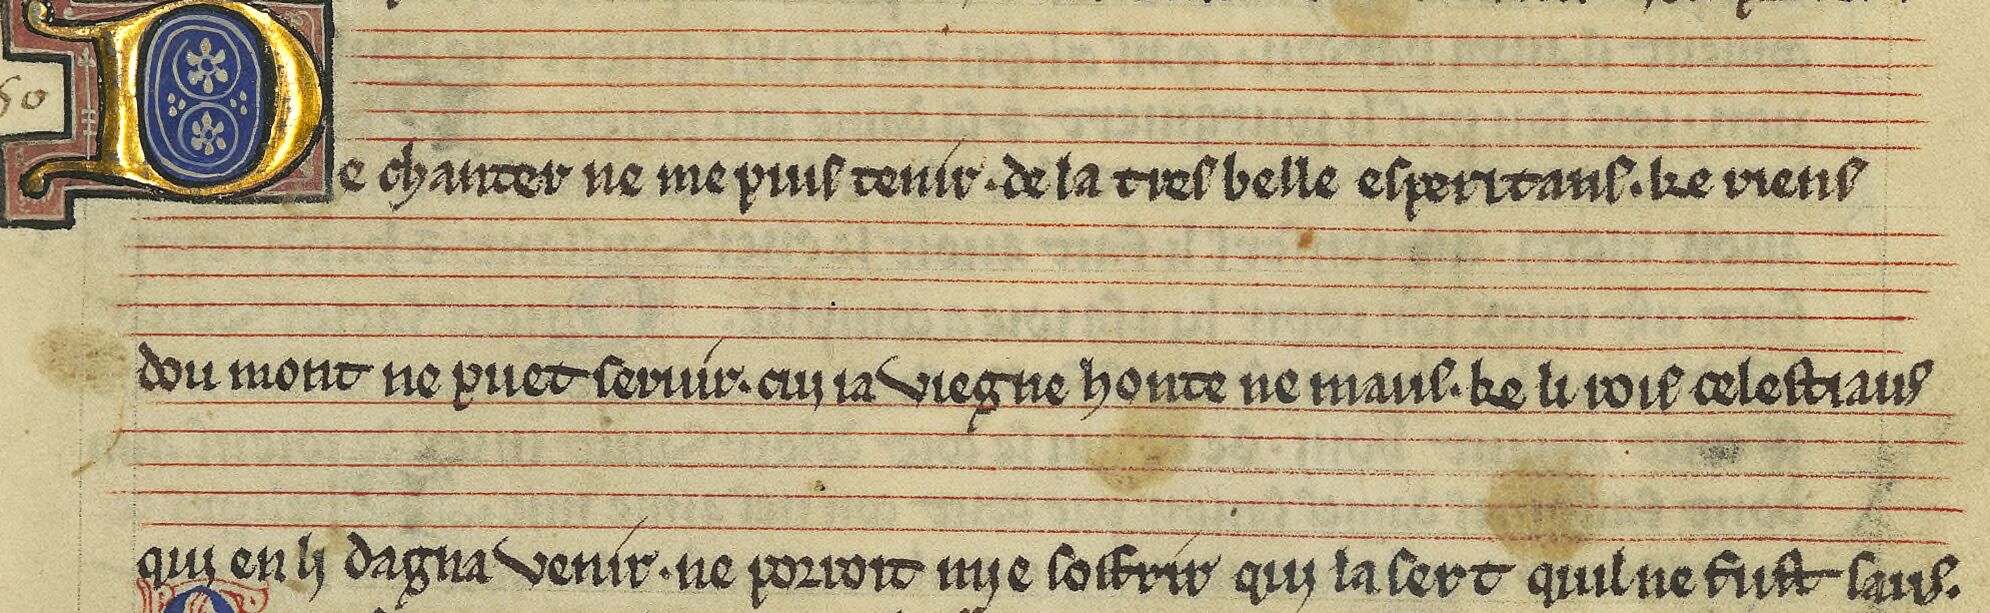 De chanter ne me puis tenir. de la tres belle esperitaus. ke riens
dou mont ne puet seruir. cui ia viegne honte ne maus. ke li rois celestiaus
qui en li dagna venir. ne porroit mie soffrir qui la sert quil ne fust saus.